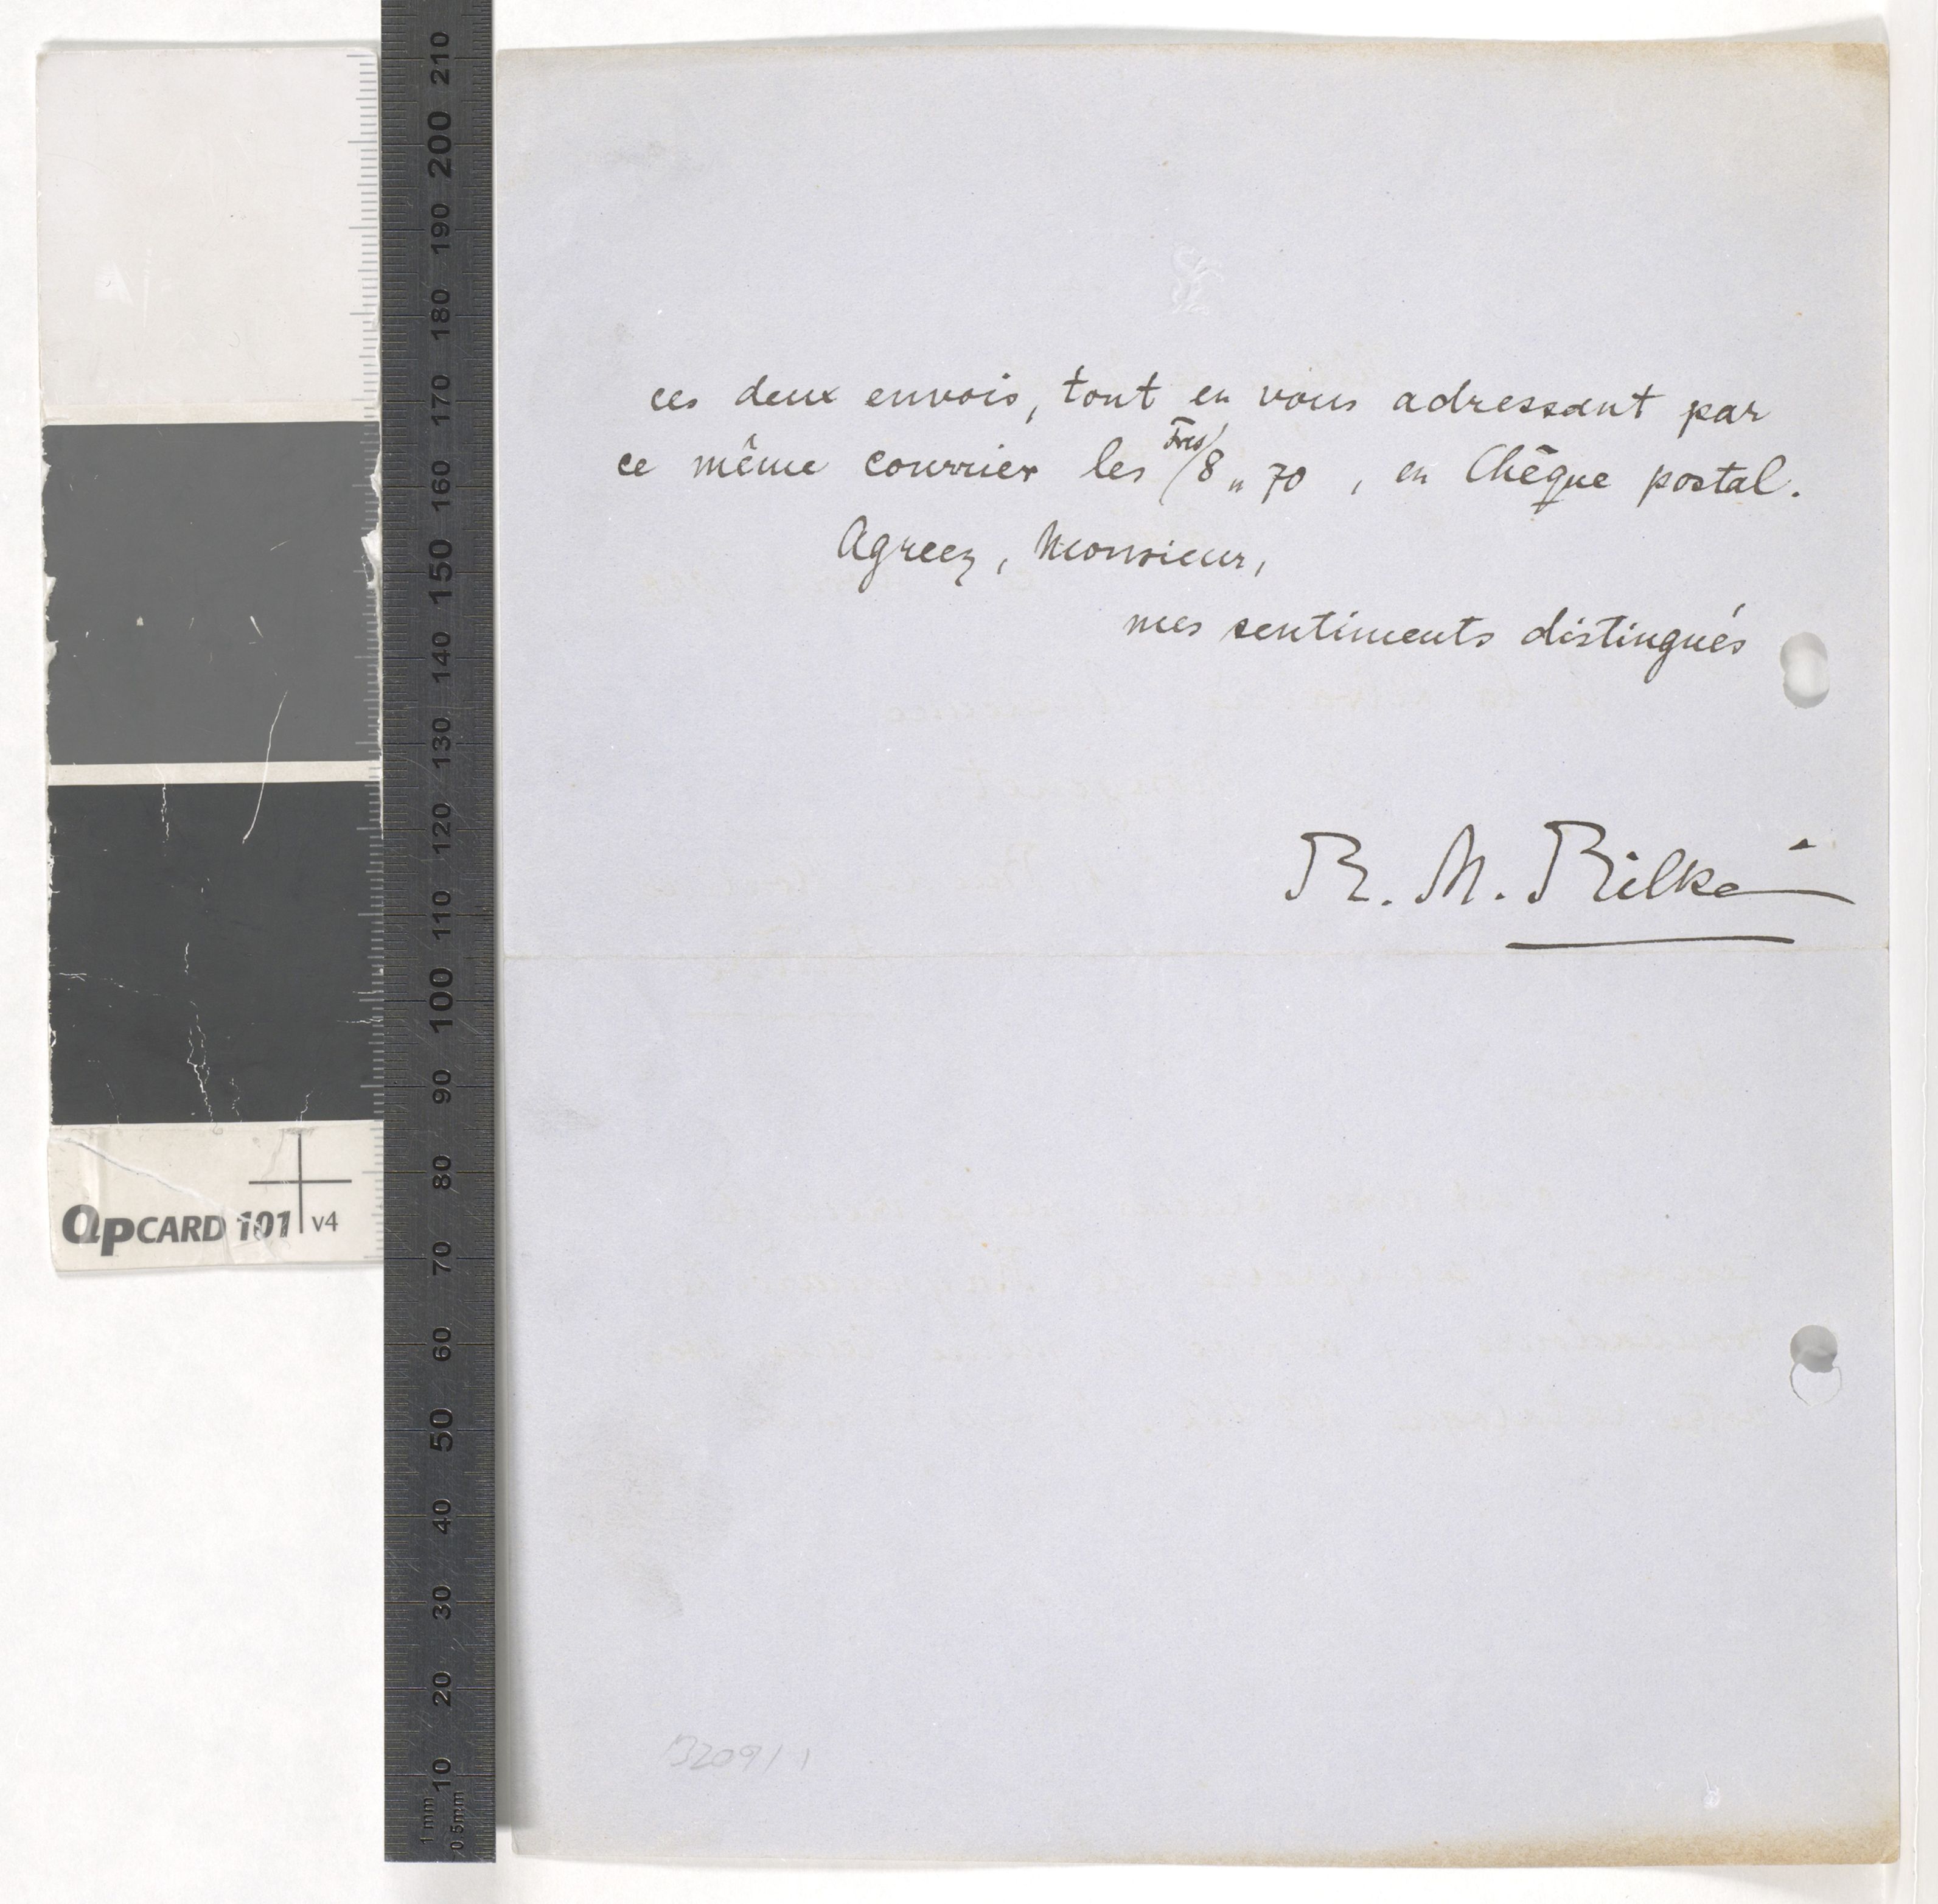 ces deux envois, tout en vous adressant par
ce même courrier les Frcs/8 „ 70 , en Chêque postal.
Agreez, Monsieur,
mes sentiments distingués
R. M. Rilke
B209/1
QPCARD 101 v4
210
200
190
180
170
160
150
140
130
120
110
100
90
80
70
60
50
40
30
20
10
1 mm
0.5mm